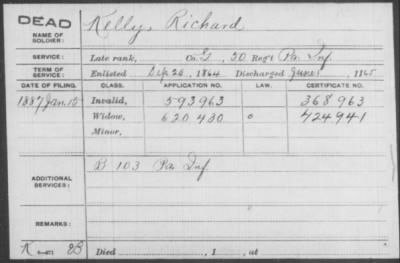 DEAD
NAME OF SOLDIER: Kelly, Richard
SERVICE: Late rank, Co. G, 50 Regt Pa. Inf.
TERM OF SERVICE: Enlisted Sep 26, 1864 Discharged June 1, 1865
DATE OF FILING. CLASS. APPLICATION NO. LAW. CERTIFICATE NO.
1887 Jan. 15 Invalid, 593963 368963
Widow, 620430 " 424941
Minor,
ADDITIONAL SERVICES: B 103 Pa Inf.
REMARKS:
Died , 1 , at